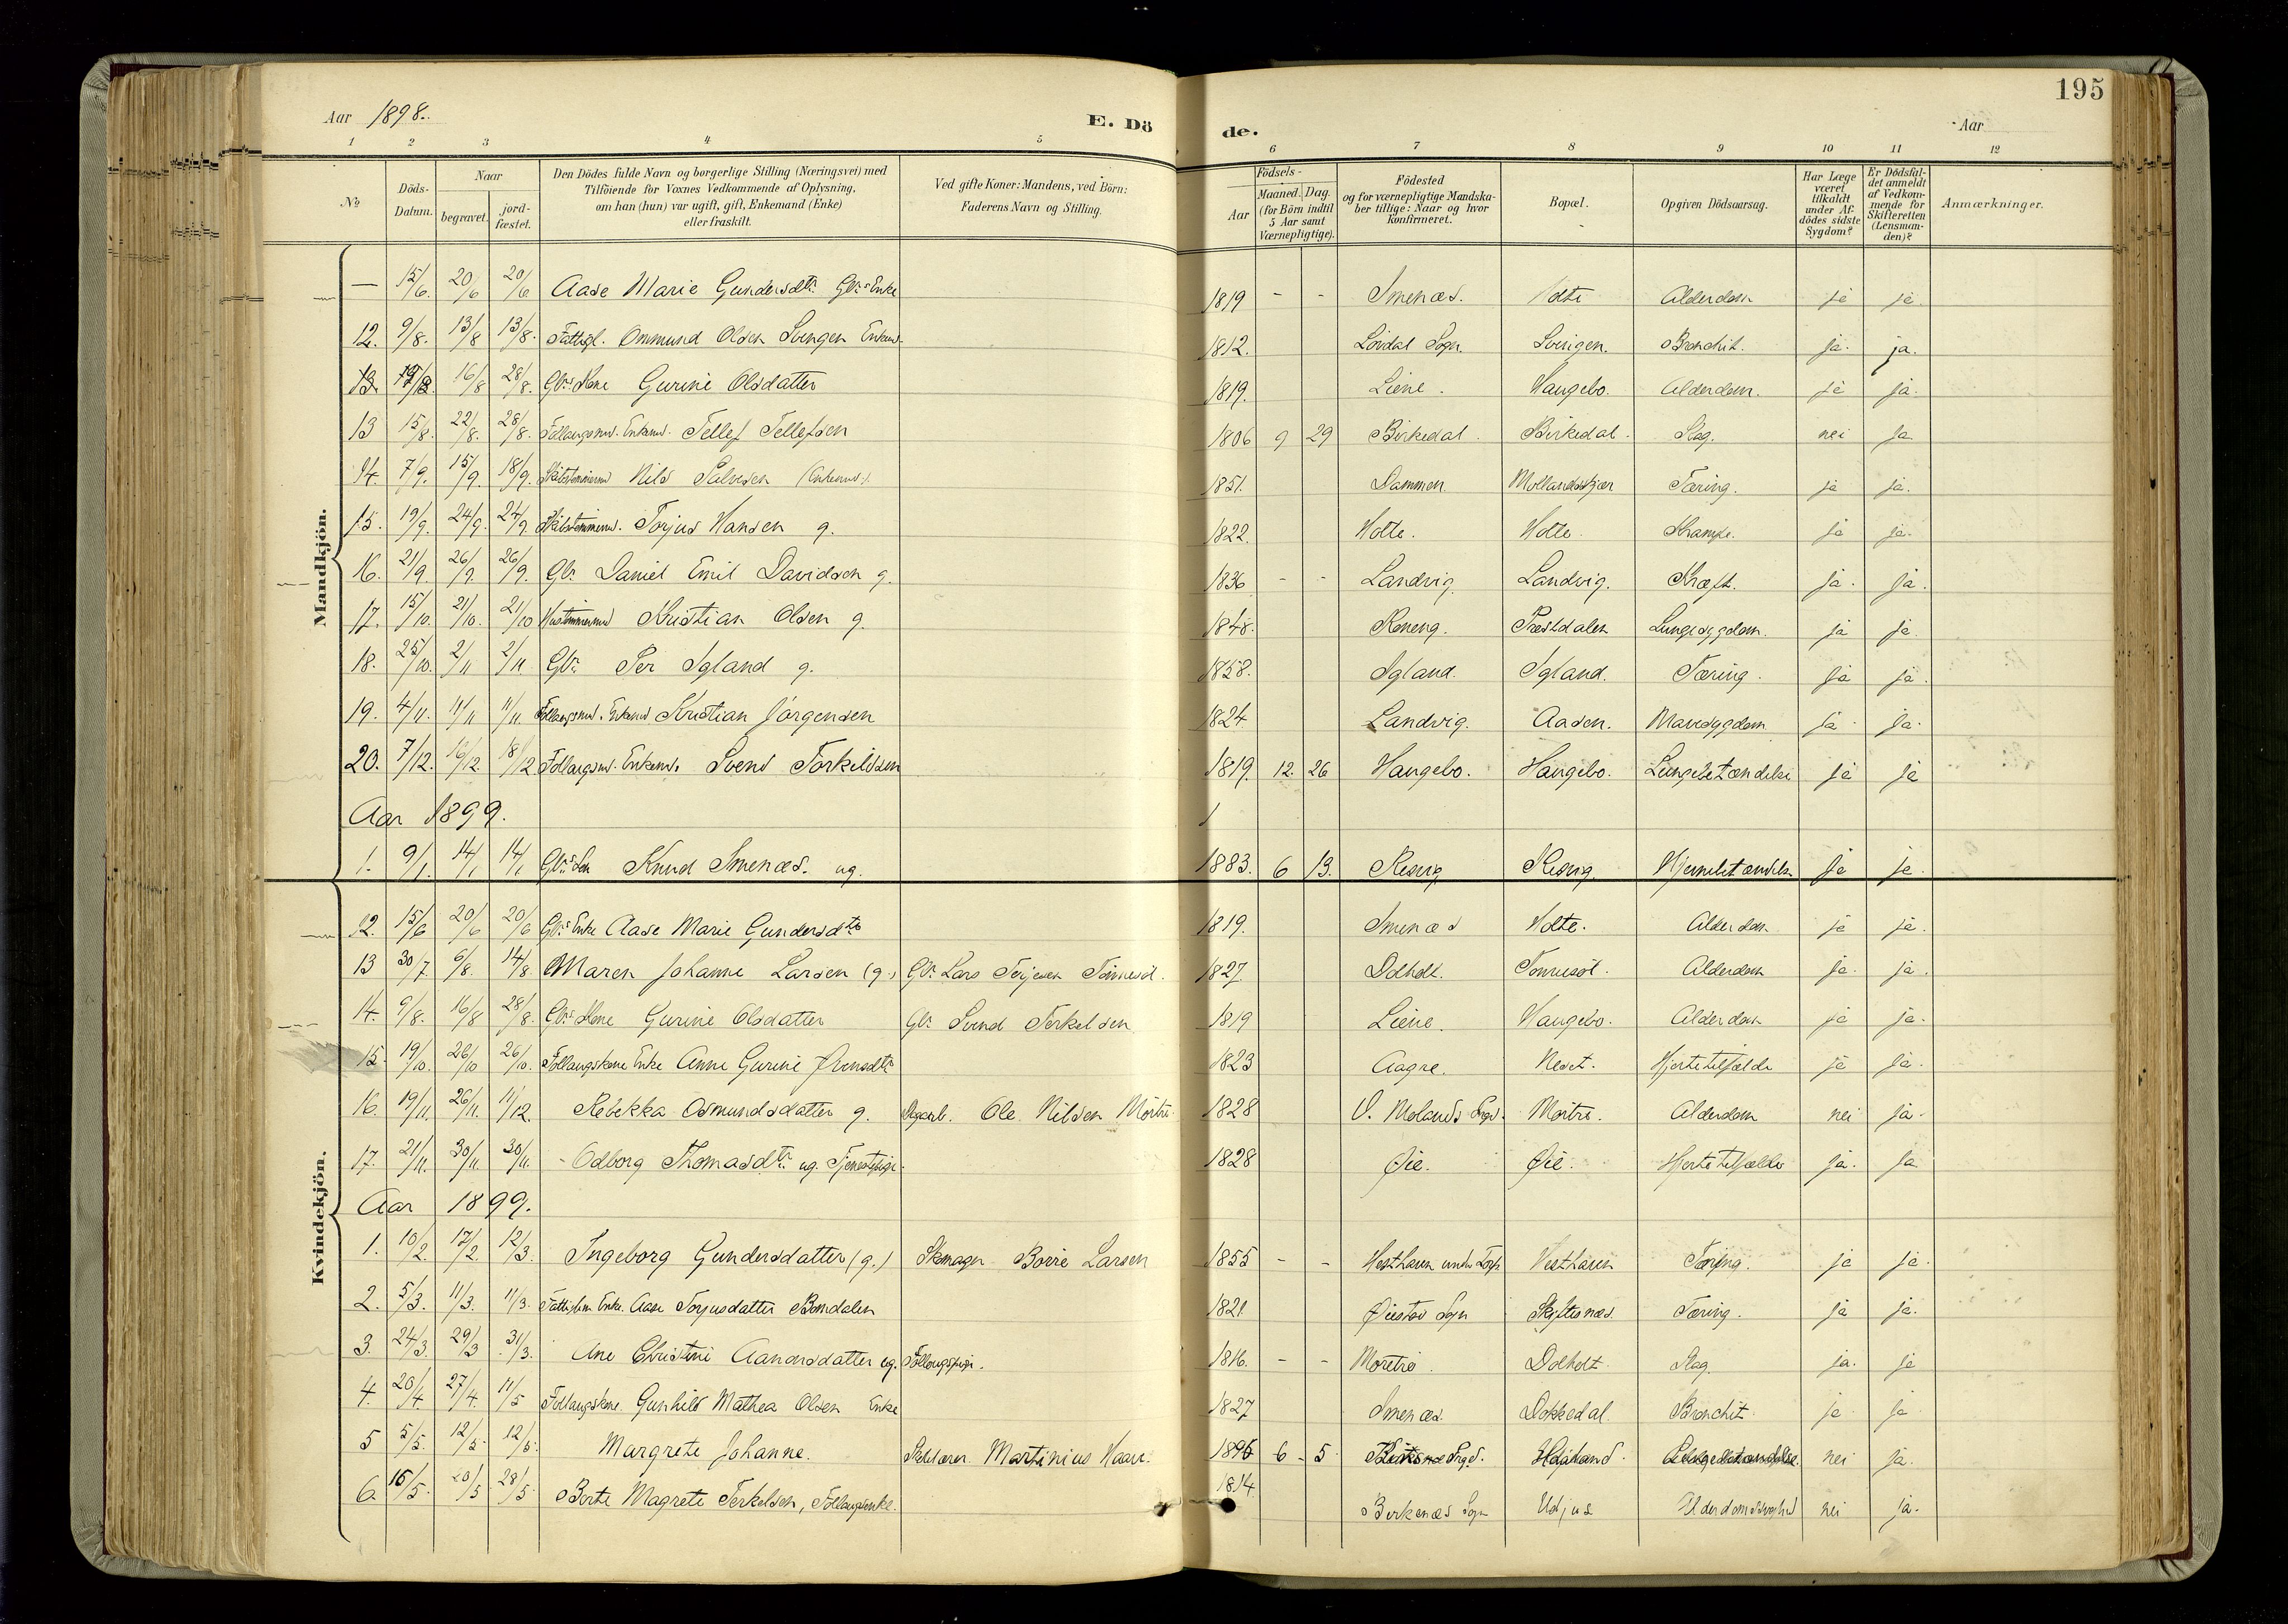 195
Aar 1898. E. Dö de. Aar
1 2 3 4 5 6 7 8 9 10 11 12
No Döds-Datum. Naar begravet. jordfæstet. Den Dödes fulde Navn og borgerlige Stilling (Næringsvei) med Tilföiende for Voxnes Vedkommende af Oplysning, om han (hun) var ugift, gift, Enkemand (Enke) eller fraskilt. Ved gifte Koner: Mandens, ved Börn: Faderens Navn og Stilling. Födsels- Aar Maaned. Dag. (for Börn indtil 5 Aar samt Værnepligtige). Födested og for værnepligtige Mandskaber tillige: Naar og hvor konfirmeret. Bopæl. Opgiven Dödsaarsag. Har Læge været tilkaldt under Afdödes sidste Sygdom? Er Dödsfaldet anmeldt af Vedkommende for Skifteretten (Lensmanden)? Anmærkninger.
Mandkjön.
— 15/6. 20/6 20/6 Aase Marie Gundersdtr. Gbrs Enke 1819 - - Smenæs. Holte Alderdom ja ja.
12. 9/8. 13/8 13/8. Fattigl. Ommund Olsen Svingen Enkem. 1812. Lövdal Sogn. Svingen. Bronchit. ja. ja.
16/8 28/8. Gbrs Kone Gurine Olsdatter 1819. Liene. Haugebo. Alderdom. ja ja.
13 15/8. 22/8. 28/8. Föllaugsmd. Enkemd. Tellef Tellefsen 1806 9 29 Birkedal. Birkedal. Slag. nei ja
14. 7/9. 15/9. 18/9. Skibstømmermd Nils Salvesen (Enkemd.). 1851. Dammen. Mollandskjær Tæring. ja ja.
15. 19/9. 24/9. 24/9. Skibstømmermd. Torjus Hansen g. 1822. Holte. Holte. Krampe. ja ja.
16. 21/9. 26/9. 26/9. Gbr. Daniel Emil Davidsen g. 1836 - - Landvig. Landvig. Kræft. ja. ja.
17. 15/10. 21/10. 21/10 Hustømmermd Kristian Olsen g. 1848. Roneng. Præstdalen Lungesygdom. ja ja.
18. 25/10. 2/11 2/11. Gbr. Per Igland g. 1858. Igland. Igland. Tæring. ja ja.
19. 4/11. 11/11 11/11 Föllaugsmd. Enkemd Kristian Jörgensen 1824 Landvig. Aasen. Mavesygdom ja. ja.
20. 7/12. 16/12. 18/12 Föllaugsmd. Enkemd. Svend Torkildsen 1819. 12. 26 Haugebo. Haugebo. Lungebetændelse ja ja
Aar 1899.
1. 9/1. 14/1 14/1 Gbrs Søn Knud Smenæs. ug. 1883. 6 13. Resvig Resvig. Hjernebetændelse ja ja.
Kvindekjön.
12. 15/6 20/6 20/6 Gbrs Enke Aase Marie Gundersdtr 1819. Smenæs Holte. Alderdom ja ja.
13 30/7. 6/8. 14/8. Maren Johanne Larsen (g.) Gbr. Lars Terjesen Tönnesöl. 1827. Dolholt. Tönnesöl. Alderdom ja. ja.
14. 9/8. 16/8 28/8. Gbrs Kone Gurine Olsdatter Gbr. Svend Terkelsen 1819 Liene. Haugebo. Alderdom ja ja.
15. 19/10. 26/10 26/10. Föllaugskone Enke Anne Gurine 1823 Aagre. Neset. Hjertetilfælde ja ja.
16. 19/11. 26/11. 11/12. Rebekka Osmundsdatter g. Dagarb. Ole Nilsen Möitri 1828 V. Molands Sogn. Möitri. Alderdom nei ja.
17. 21/11. 30/11. 30/11. Odborg Thomasdtr. ug. Tjenestepige. 1828 Øie. Øie. Hjertetilfælde ja. ja
Aar 1899.
1. 10/2. 17/2. 12/3. Ingeborg Gundersdatter (g.) Skomager Börre Larsen 1855 - - Vesthaven under Torp Vesthaven Tæring. ja ja.
2. 5/3. 11/3. 11/3. Fattiglem Enke. Aase Torjusdatter Bomdalen 1821 Øiestad Sogn Skiftenæs. Tæring. ja ja.
3. 24/3 29/3 31/3. Ane Christine Aanonsdatter ug. Föllaugspige. 1816. - - Moretrø. Dolholt. Slag. ja. ja
4. 20/4 27/4. 11/5 Föllaugskone. Gunhild Mathea Olsen Enke 1827 Smenæs. Dokkedal. Bronchit. ja. ja.
5 5/5. 12/5. 12/5. Margrete Johanne. Martinius Haar. 1896 6 5. Birkenæs Sogn. Lungebetændelse. nei ja.
6. 16/5. 20/5 28/5. Berte Magrete Terkelsen, Föllaugsenke. 1814. Birkenæs Sogn Udjus Alderdomssvaghed nei ja.